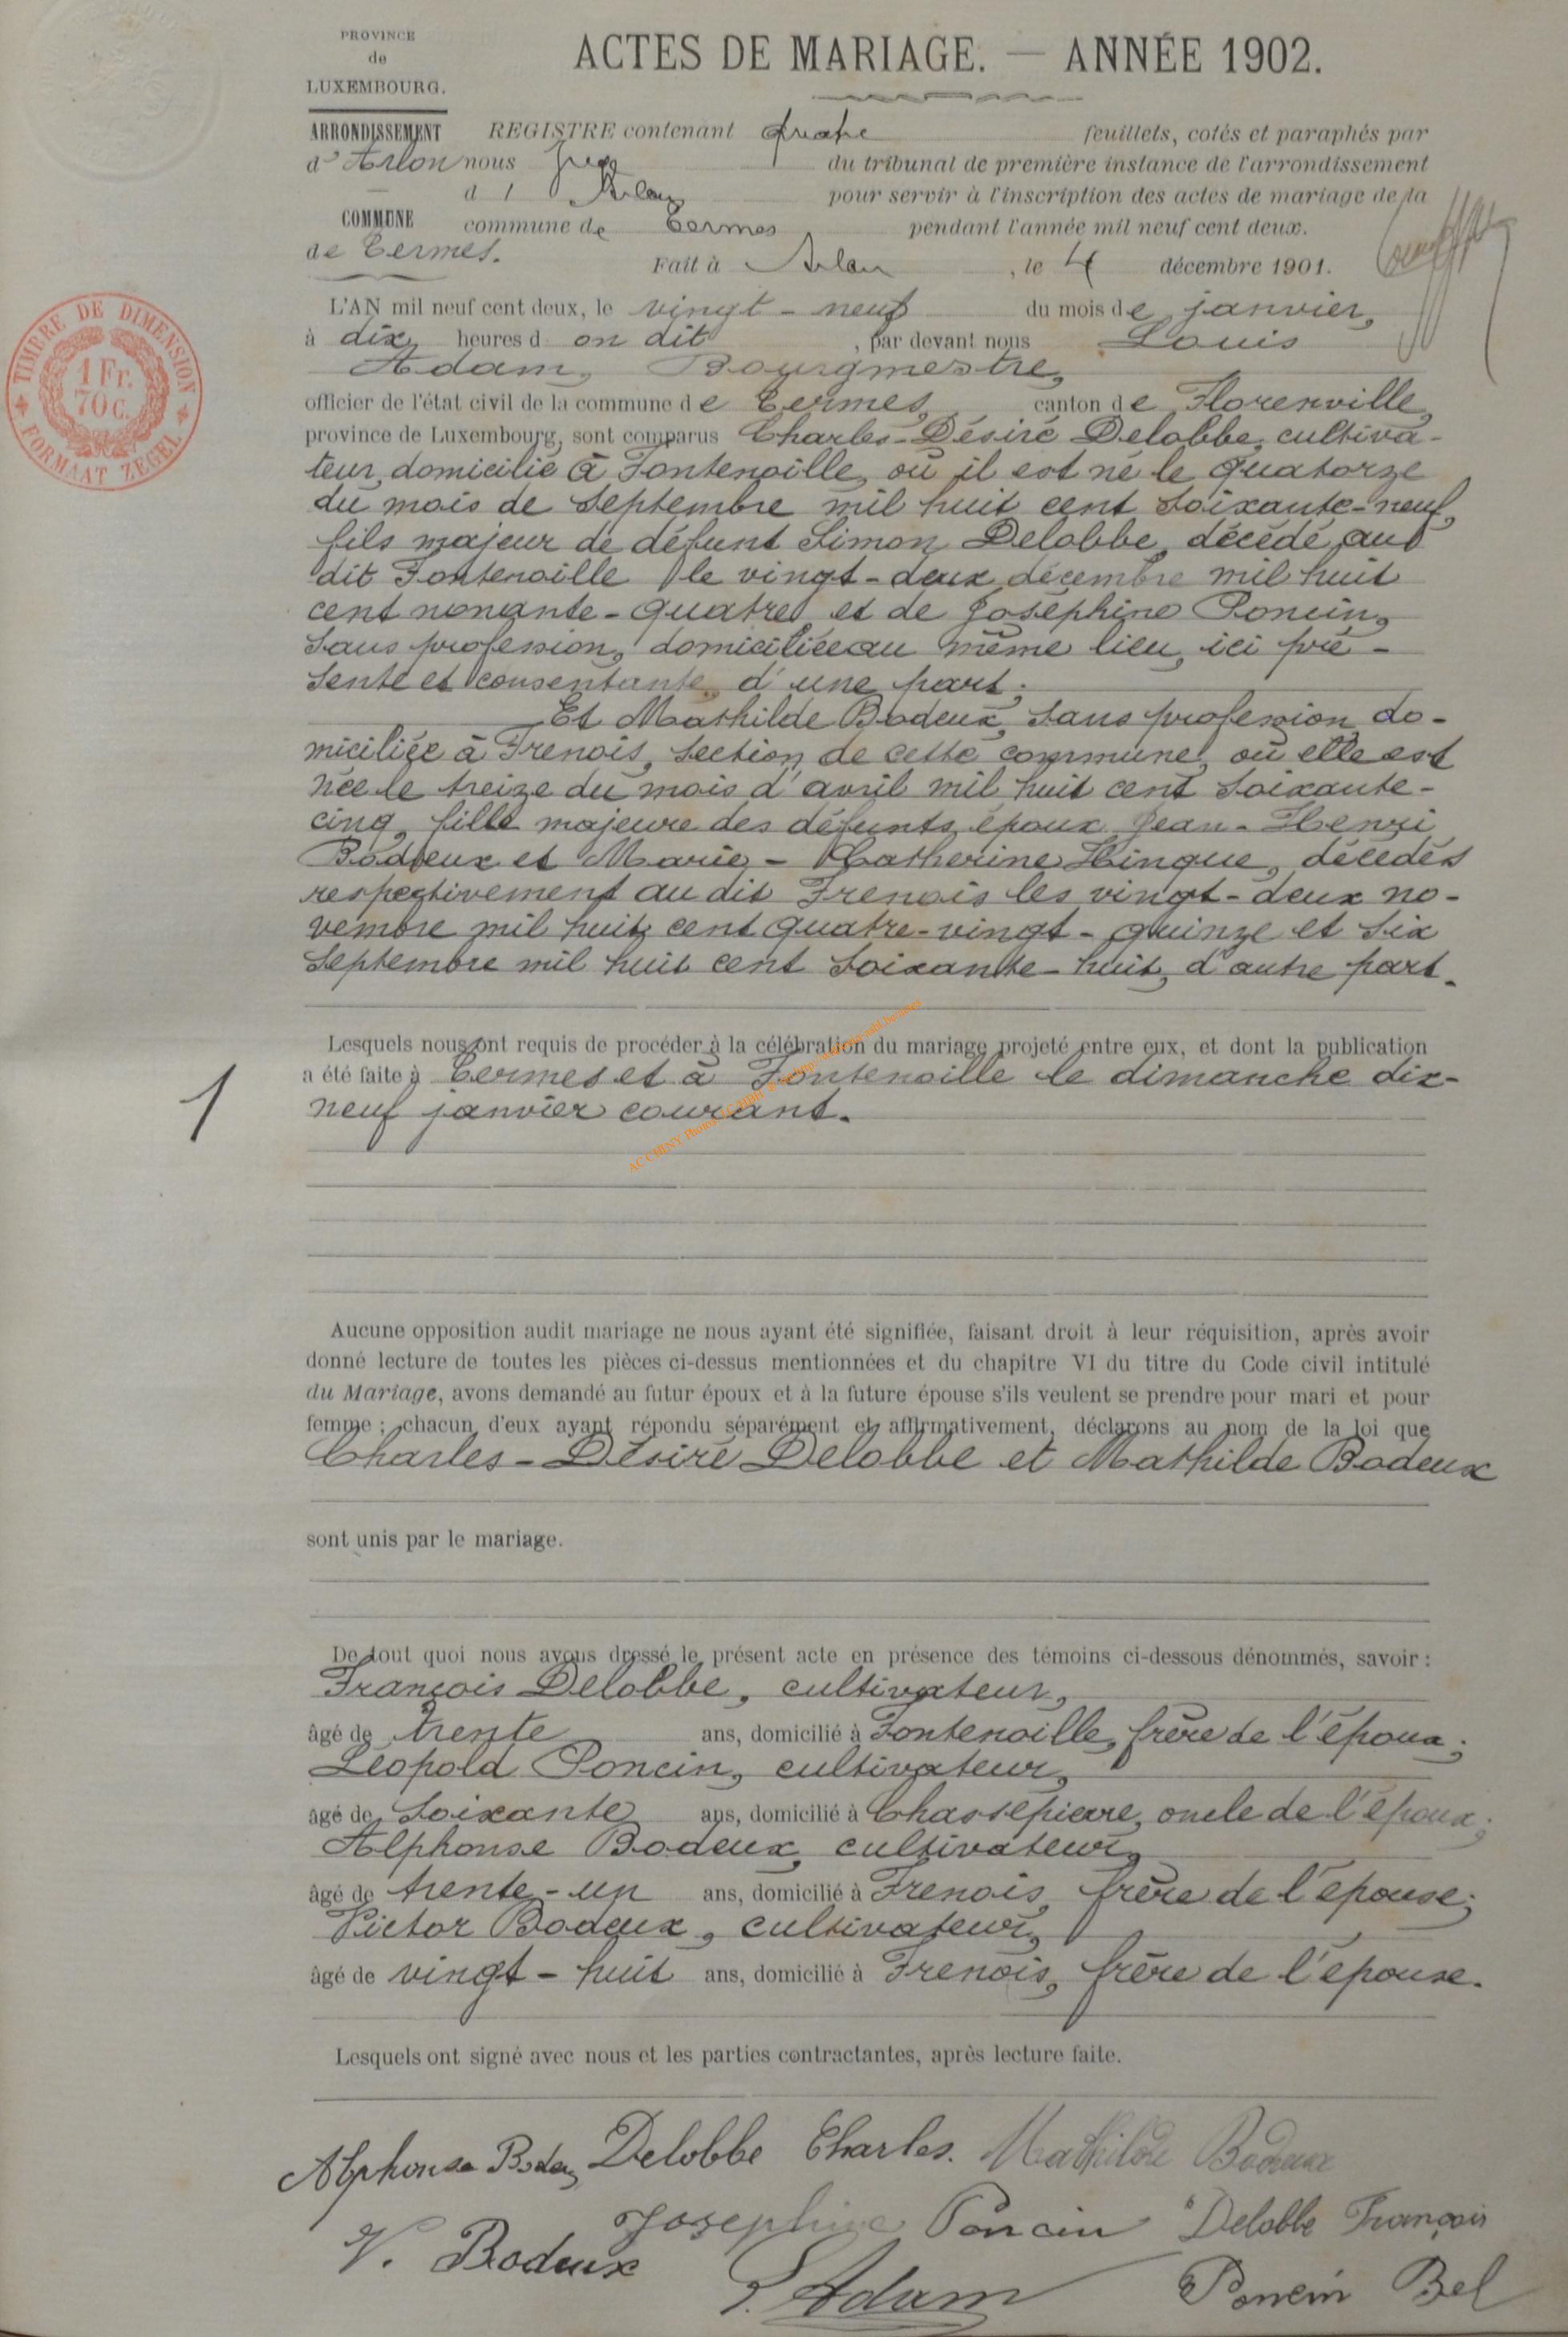 PROVINCE
de
LUXEMBOURG.
ACTES DE MARIAGE. — ANNÉE 1902.
ARRONDISSEMENT
d'Arlon
COMMUNE
de Termes.
REGISTRE contenant quatre feuillets, cotés et paraphés par
nous Juge du tribunal de première instance de l'arrondissement
d' Arlon pour servir à l'inscription des actes de mariage de la
commune de Termes pendant l'année mil neuf cent deux.
Fait à Arlon, le 4 décembre 1901.
TIMBRE DE DIMENSION
1 Fr.
70 c.
FORMAAT ZEGEL
L'AN mil neuf cent deux, le vingt-neuf du mois de janvier,
à dix heures d on dit, par devant nous Louis
Adam, Bourgmestre,
officier de l'état civil de la commune de Termes, canton de Florenville,
province de Luxembourg, sont comparus Charles-Désiré Delobbe, cultiva-
teur, domicilié à Fontenoille, où il est né le quatorze
du mois de Septembre mil huit cent soixante-neuf,
fils majeur de défunt Simon Delobbe, décédé au
dit Fontenoille le vingt-deux décembre mil huit
cent nonante-quatre et de Joséphine Poncin,
sans profession, domiciliée au même lieu, ici pré-
sente et consentante, d'une part;
Et Mathilde Bodeux, sans profession, do-
miciliée à Frenois, section de cette commune, où elle est
née le treize du mois d'avril mil huit cent soixante-
cinq, fille majeure des défunts époux Jean-Henri
Bodeux et Marie-Catherine Hinque, décédés
respectivement au dit Frenois les vingt-deux no-
vembre mil huit cent quatre-vingt-quinze et six
septembre mil huit cent soixante-huit, d'autre part.
Lesquels nous ont requis de procéder à la célébration du mariage projeté entre eux, et dont la publication
a été faite à Termes et à Fontenoille le dimanche dix-
neuf janvier courant.
1
AC CHINY
Aucune opposition audit mariage ne nous ayant été signifiée, faisant droit à leur réquisition, après avoir
donné lecture de toutes les pièces ci-dessus mentionnées et du chapitre VI du titre du Code civil intitulé
du Mariage, avons demandé au futur époux et à la future épouse s'ils veulent se prendre pour mari et pour
femme ; chacun d'eux ayant répondu séparément et affirmativement, déclarons au nom de la loi que
Charles-Désiré Delobbe et Mathilde Bodeux
sont unis par le mariage.
De tout quoi nous avons dressé le présent acte en présence des témoins ci-dessous dénommés, savoir :
François Delobbe, cultivateur,
âgé de trente ans, domicilié à Fontenoille, frère de l'époux;
Léopold Poncin, cultivateur,
âgé de soixante ans, domicilié à Chassepierre, oncle de l'époux;
Alphonse Bodeux, cultivateur,
âgé de trente-un ans, domicilié à Frenois, frère de l'épouse;
Victor Bodeux, cultivateur,
âgé de vingt-huit ans, domicilié à Frenois, frère de l'épouse.
Lesquels ont signé avec nous et les parties contractantes, après lecture faite.
Alphonse Bodeux Delobbe Charles. Mathilde Bodeux
Josephine Poncin Delobbe François
V. Bodeux
L. Adam Poncin Bel